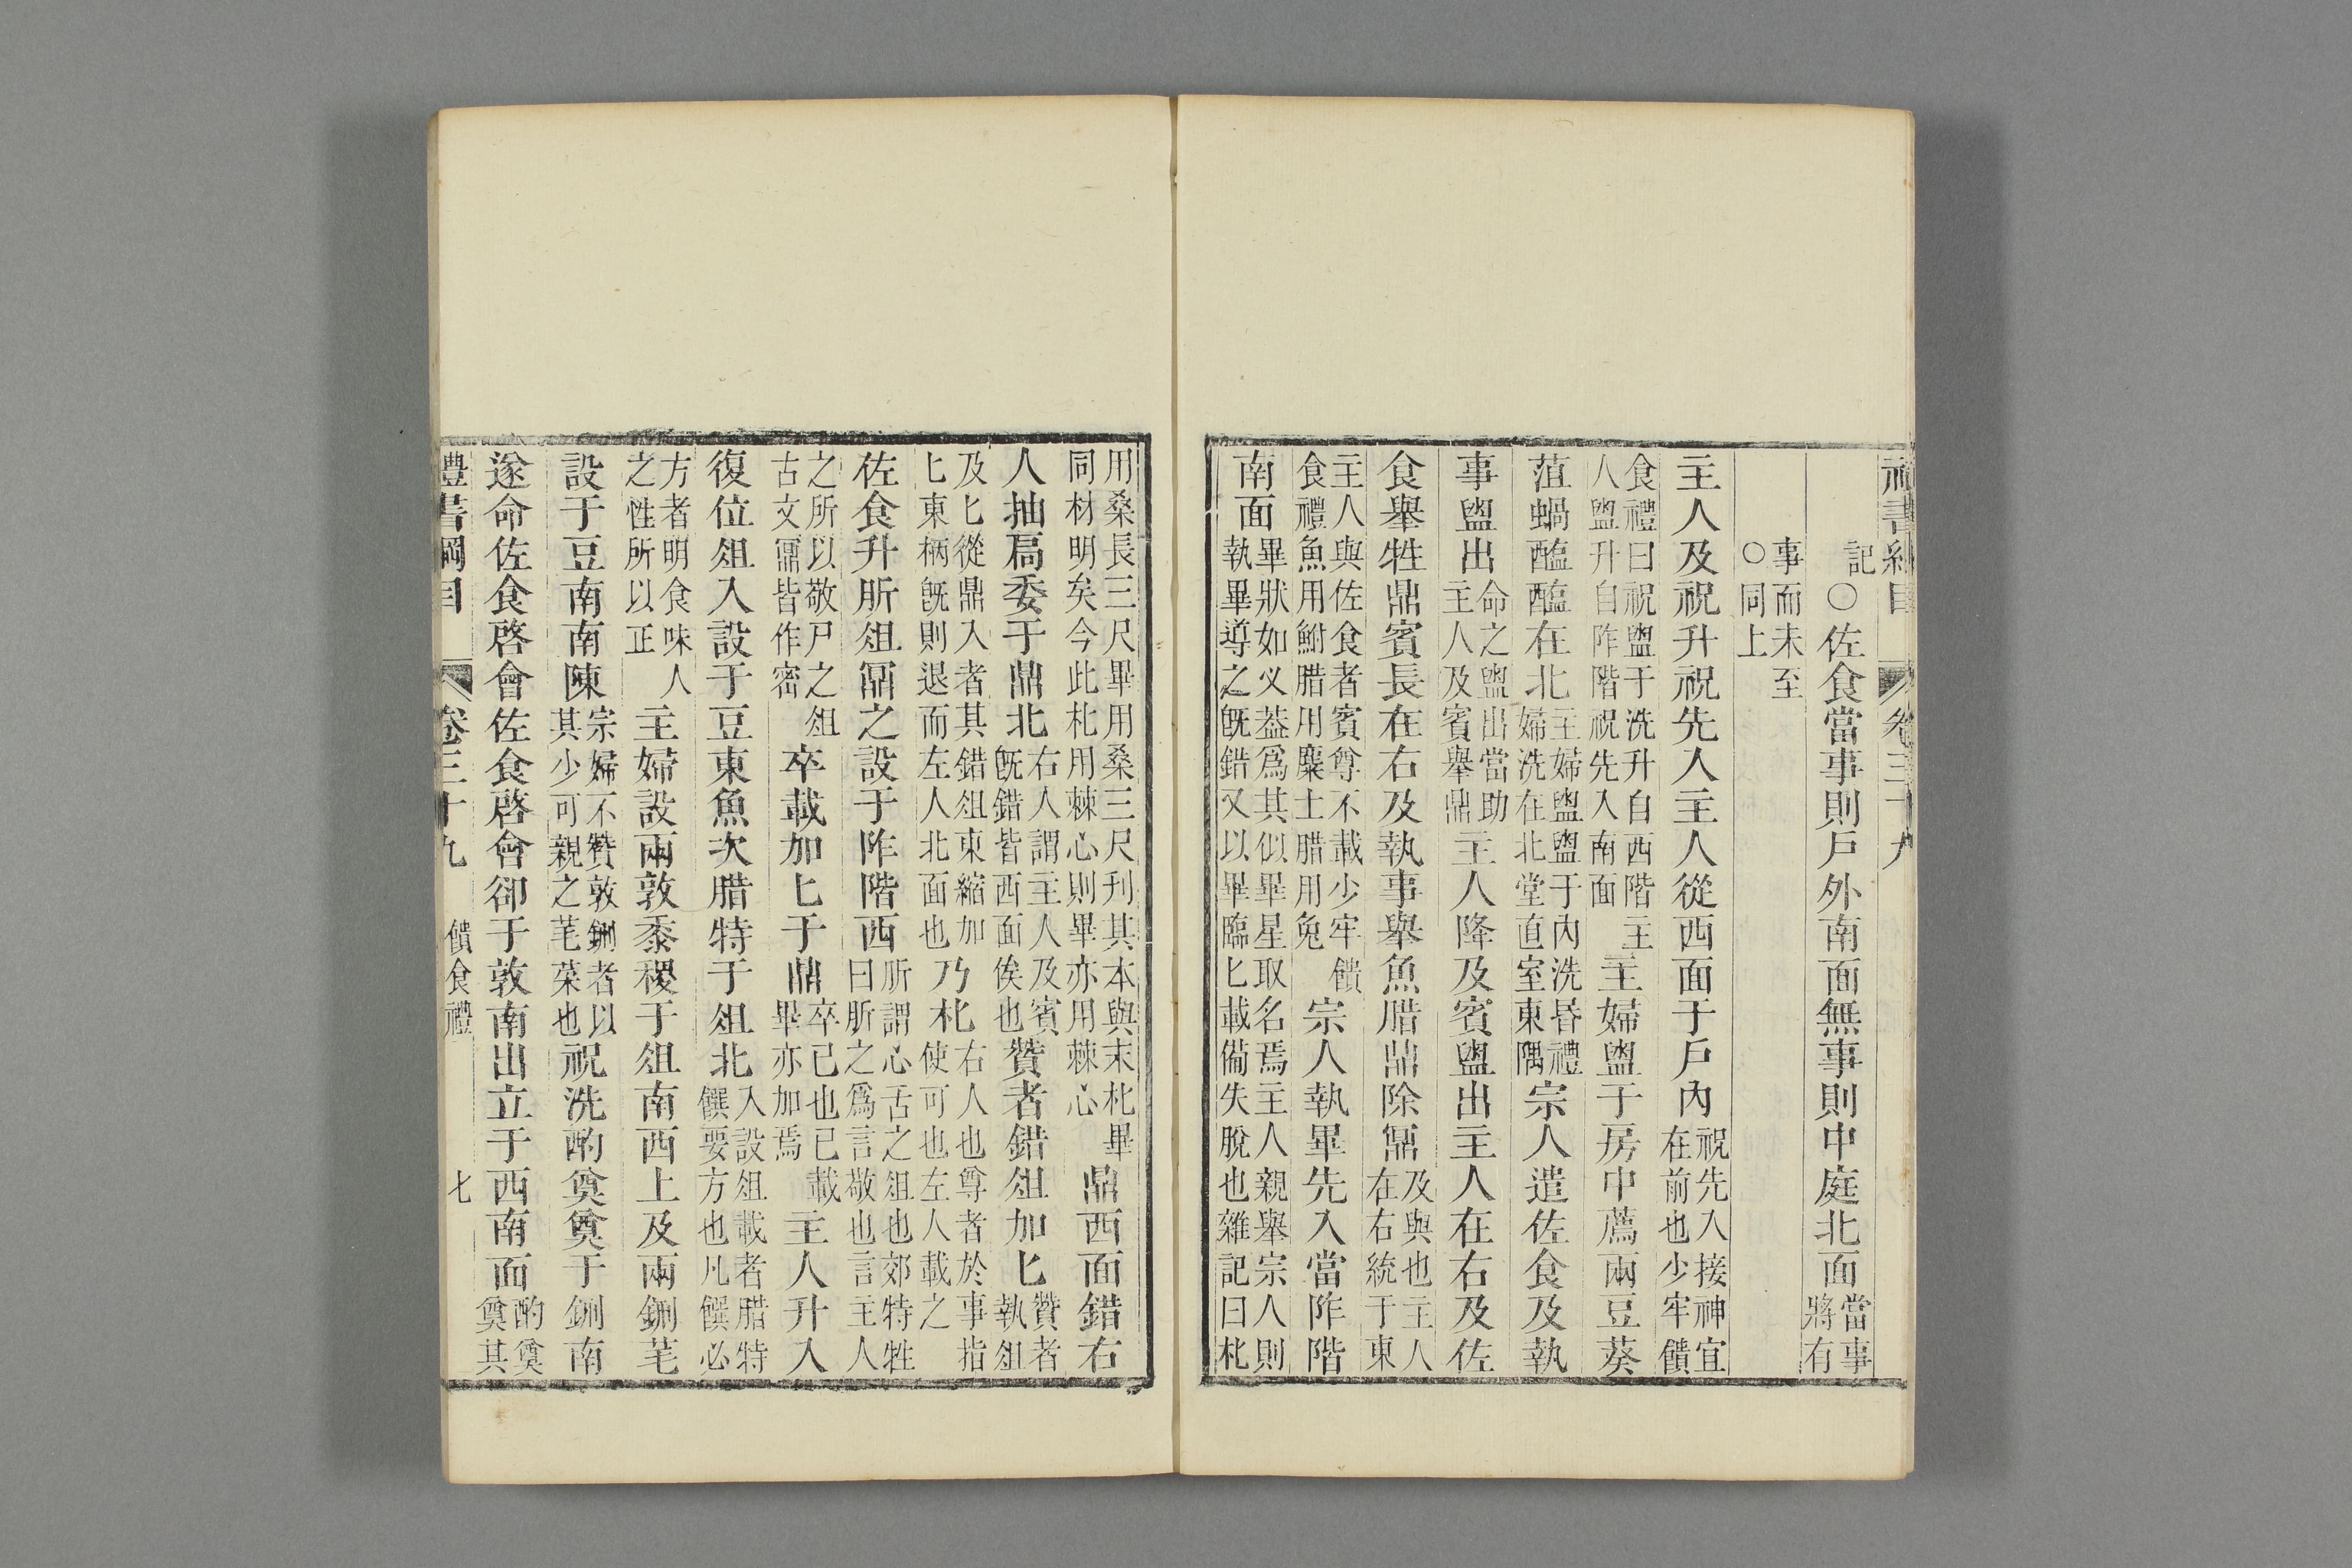 禮書綱目 卷三十九
記○佐食當事則戶外南面無事則中庭北面當事將有
事而未至○同上
主人及祝升祝先入主人從西面于戶內祝先入接神宜在前也少牢饋
食禮曰祝盥于洗升自西階主人盥升自阼階祝先入南面主婦盥于房中薦兩豆葵
菹蝸醢醢在北主婦盥盥于內洗昬禮婦洗在北堂直室東隅宗人遣佐食及執
事盥出命之盥出當助主人及賓舉鼎主人降及賓盥出主人在右及佐
食舉牲鼎賓長在右及執事舉魚腊鼎除鼏及與也主人在右統于東
主人與佐食者賓尊不載少牢饋食禮魚用鮒腊用麋士腊用兔宗人執畢先入當阼階
南面畢狀如叉葢爲其似畢星取名焉主人親舉宗人則執畢導之旣錯又以畢臨匕載備失脫也雜記曰朼
用桑長三尺畢用桑三尺刋其本與末朼畢同材明矣今此朼用棘心則畢亦用棘心鼎西面錯右
人抽扃委于鼎北右人謂主人及賓旣錯皆西面俟也贊者錯俎加匕贊者執俎
及匕從鼎入者其錯俎東縮加匕東柄旣則退而左人北面也乃朼右人也尊者於事指使可也左人載之
佐食升肵俎鼏之設于阼階西肵謂心舌之俎也郊特牲曰肵之爲言敬也言主人
之所以敬尸之俎古文鼏皆作密卒載加匕于鼎卒已也已載畢亦加焉主人升入
復位俎入設于豆東魚次腊特于俎北入設俎載者腊特饌要方也凡饌必
方者明食味人之性所以正主婦設兩敦黍稷于俎南西上及兩鉶芼
設于豆南南陳宗婦不贊敦鉶者以其少可親之芼菜也祝洗酌奠奠于鉶南
遂命佐食啓會佐食啓會卻于敦南出立于西南面酌奠奠其
禮書綱目 卷三十九 饋食禮 七